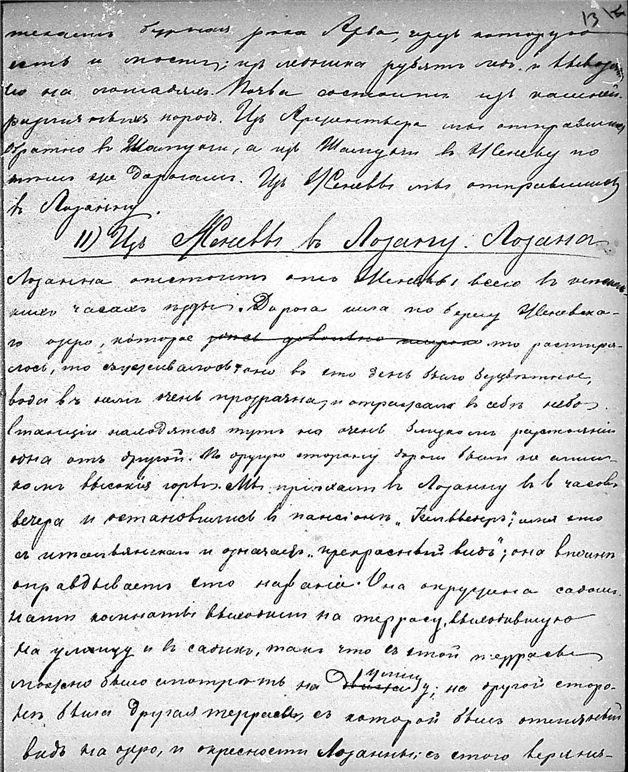 13
текаетъ бурная рѣка Арва, чрезъ которую
есть и мостъ; изъ ледника рубятъ ледъ и вывозятъ
его на лошадяхъ. Почва состоитъ изъ камней
различныхъ породъ. Изъ Аржентьера мы отправились
обратно в Шамуни, а изъ Шамуни въ Женеву по
тѣмъ же дорогамъ. Изъ Женевы мы отправились
въ Лозанну.
11) Изъ Женевы въ Лозану. Лозана
Лозанна отстоитъ отъ Женевы всего въ
кихъ часахъ ѣзды. Дорога шла по берегу Женевска-
го озера, которое то расширя-
лось, то съуживалось; оно въ это день было безцвѣтное,
вода въ немъ очень прозрачна, и отражала въ себѣ небо.
Станціи находятся тутъ на очень близкомъ разстояніи
одна отъ другой. По другую сторону дороги были не слиш-
комъ высокія горы. Мы пріѣхали въ Лозанну въ 6 часовъ
вечера и остановились в пансіонѣ „ "; имя это
съ итальянскаго и означаетъ „прекрасный видъ"; она вполнѣ
оправдываетъ это названіе. Она окружена садомъ.
наши комнаты выходили на террасу, выходившую
на улицу и въ садикъ, такъ что съ этой террасы
можно было смотрѣть на улицу; на другой сторо-
нѣ была другая терраса, съ которой былъ отличный
видъ на озеро, и окресности Лозанны; съ этого